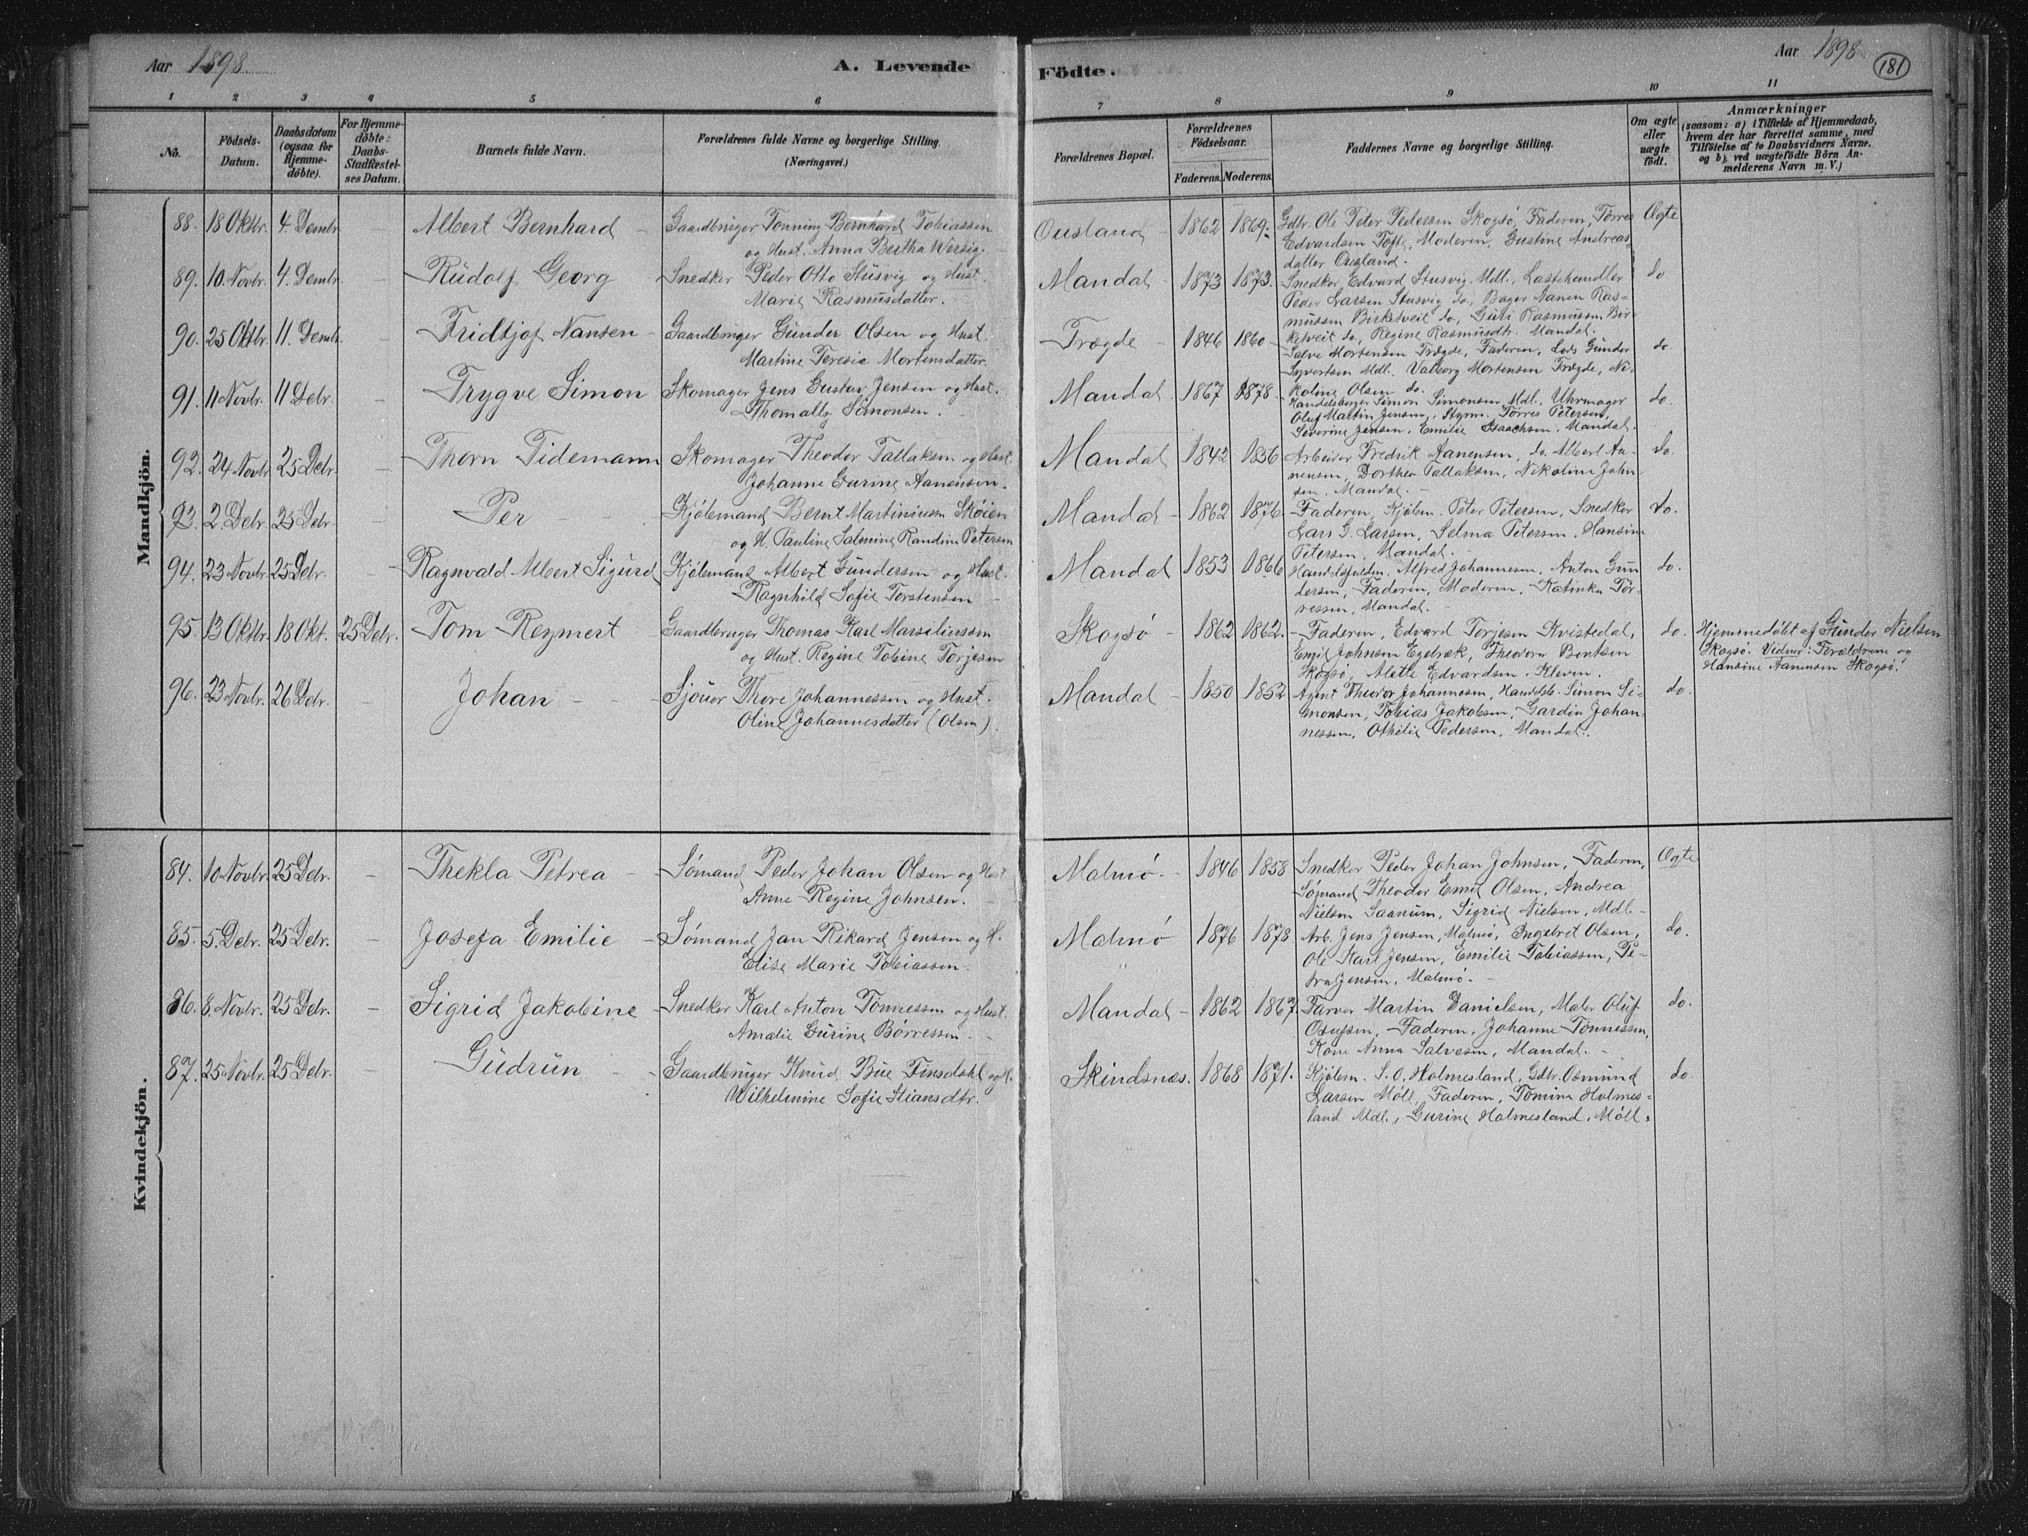 Aar 1898.
A. Levende Födte.
Aar 1898
181
1 2 3 4 5 6 7 8 9 10 11
No.
Födsels-Datum.
Daabsdatum (ogsaa for Hjemme-döbte).
For Hjemme-döbte: Daabs-Stadfæstel-ses Datum.
Barnets fulde Navn.
Forældrenes fulde Navne og borgerlige Stilling. (Næringsvei.)
Forældrenes Bopæl.
Forældrenes Födselsaar.
Faderens. Moderens.
Faddernes Navne og borgerlige Stilling.
Om ægte eller uægte födt.
Anmærkninger
(saasom: a) i Tilfælde af Hjemmedaab,
hvem der har forrettet samme, med
Tilföielse af to Daabsvidners Navne.
og b), ved uægtefödte Börn An-
melderens Navn m. V.)
Mandkjön.
88. 18 Oktbr. 4 Dembr. - Albert Bernhard - Gaardbruger Tönning Bernhard Tobiassen
og Hust. Anna Bertha Wersig.
Ousland - 1862 1869.
Gdbr. Ole Peter Pedersen Skogsø, Faderen, Tørres
Edvardsen Tofte, Moderen, Gustine Andreas-
datter Ousland.
Ægte
89. 10 Novbr. 4. Dembr. - Rudolf Georg - Snedker Peder Otto Stusvig og Hust.
Marie Rasmusdatter.
Mandal - 1873 1873.
Snedker, Edvard Stusvig Mdl., Læstehandler
Peder Larsen Stusvig do, Bager Nanen Ras-
mussen Birketveit do, Guri Rasmussen Bir-
ketveit do, Regine Rasmusdtr. Mandal.
do
90. 25 Oktbr. 11. Dembr. - Fridtjof Nansen - Gaardbruger Gunder Olsen og Hust.
Martine Teresie Mortensdatter.
Trægde - 1846 1860 -
Salve Mortensen Trægde, Faderen, Lods Gunder
Syvertsen Mdl. Valborg Mortensen Trægde, Ni-
koline Olsen do.
do.
91. 11 Novbr. 11 Debr. - Trygve Simon - Skomager Jens Gustav Jensen og Hust.
Thomally Simonsen.
Mandal - 1867 1878 -
Handelsborger Simon Simonsen, Mdl., Uhrmager
Oluf Martin Jensen, Styrm. Tørres Petersen,
Severine Jensen, Emilie Isaachsen, Mandal.
do.
92. 24 Novbr. 25 Debr. - Thorn Tidemann Skomager Theodor Tallaksen og Hust
Johanne Gurine Aanensen.
Mandal - 1842 1856 -
Arbeider Fredrik Aanensen, do. Albert Aa-
nensen, Dorthea Tallaksen, Nikoline John-
sen, Mandal. -
do.
93. 2. Debr. 25 Debr - Per - Kjölemand Bernt Martiniusen Skøien
og H. Pauline Salmine Randine Petersen
Mandal - 1862 1876 -
Faderen, Kjölem. Peter Petersen, Snedker
Lars G. Larsen, Selma Petersen, Hansine
Petersen, Mandal. -
do.
94. 23 Novbr. 25 Debr. - Ragnvald Albert Sigurd Kjölemand Albert Gundersen og Hust.
Ragnhild Sofie Torstensen -
Mandal 1853 1866
Handelsfuldm. Alfred Johannesen, Anton Gun
dersen, Faderen, Moderen, Katinka Tör-
ressen, Mandal. -
do.
95. 13 Oktbr. 18 Okt. 25 Debr. - Tom Reymert - Gaardbruger Thomas Karl Marseliussen
og Hust. Regine Tobine Torjesen
Skogsø - 1862 1862.
- Faderen, Edvard Torjesen Kvistedal,
Emil Johnsen Egebæk, Theodora Bentsen
Skogsø, Alette Edvardsen, Kleven.
do. Hjemmedöbt af Gunder Nielsen
Skogsø. Vidner: Forældrene og
Hansine Aanensen Skogsø.
96. 23 Novbr. 26 Debr. - Johan - - Sjöuer Thore Johannessen og Hust.
Oline Johannesdatter (Olsen).
Mandal - 1850 1852
Agent Theodor Johannesen, Handelsb. Simon Si-
monsen, Tobias Jakobsen, Gardin Johan-
nessen, Othilie Pedersen, Mandal.
do.
Kvindekjön.
84. 10 Novbr. 25 Debr. - Thekla Petrea - Sømand Peder Johan Olsen og Hust
Anne Regine Johnsen. -
Malmø. - 1846 1858
Snedker Peder Johan Johnsen, Faderen,
Sømand Theodor Emil Olsen, Andrea
Nielsen Saanum, Sigrid Nielsen, Mdl. -
Ægte
85. 5. Debr. 25 Debr. - Josefa Emilie - Sømand Jan Rikard Jensen og H.
Elise Marie Tobiassen.
Malmø 1876 1878.
Arb. Jens Jensen, Malmø, Ingebret Olsen,
Ole Karl Jensen, Emilie Tobiassen, Pe-
tra Jensen, Malmø. -
do.
86. 8. Novbr. 25 Debr. - Sigrid Jakobine - Snedker Karl Anton Tönnessen og Hust.
Amalie Gurine Børresen. -
Mandal - 1862 1867.
Farver Martin Danielsen, Maler Oluf
Osuysen, Faderen, Johanne Tönnessen,
Kone Anna Salvesen, Mandal. -
do.
87. 25 Novbr. 25 Debr. - Gudrun - Gaardbruger Knud Bue Finsdahl og H.
Wilhelmine Sofie Stiansdtr.
Skindsnæs. 1868 1871.
Kjölem. S. O. Holmesland, Gdbr. Osmund
Larsen Möll, Faderen, Tomine Holmes-
land Mdl., Gurine Holmesland, Möll.
do